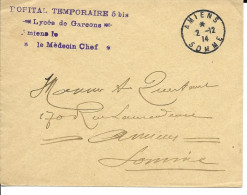 HOPITAL TEMPORAIRE 5 bis
Lycée de Garçons
Amiens le
le Médecin Chef
AMIENS
*
2 -12
14
SOMME
Monsieur A
170
Amiens
Somme